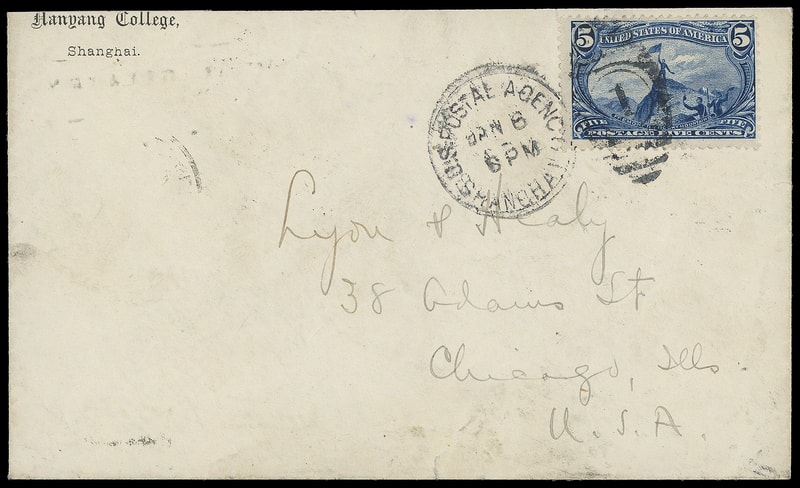 Nanyang College,
Shanghai.
5 UNITED STATES OF AMERICA 5
FIVE FIVE
POSTAGE FIVE CENTS
U.S. POSTAL AGENCY
JAN 6
6 PM
SHANGHAI
1
Lyon & Healy
38 Adams St
Chicago, Ills
U.S.A.